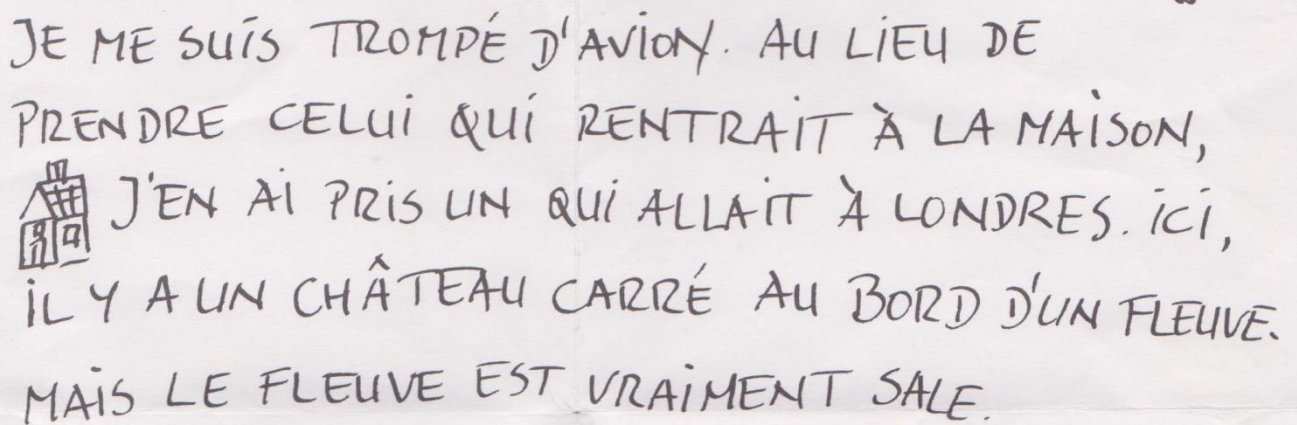 JE ME SUIS TROMPÉ D'AVION. AU LIEU DE
PRENDRE CELUI QUI RENTRAIT À LA MAISON,
J'EN AI PRIS UN QUI ALLAIT À LONDRES. ICI,
IL Y A UN CHÂTEAU CARRÉ AU BORD D'UN FLEUVE.
MAIS LE FLEUVE EST VRAIMENT SALE.